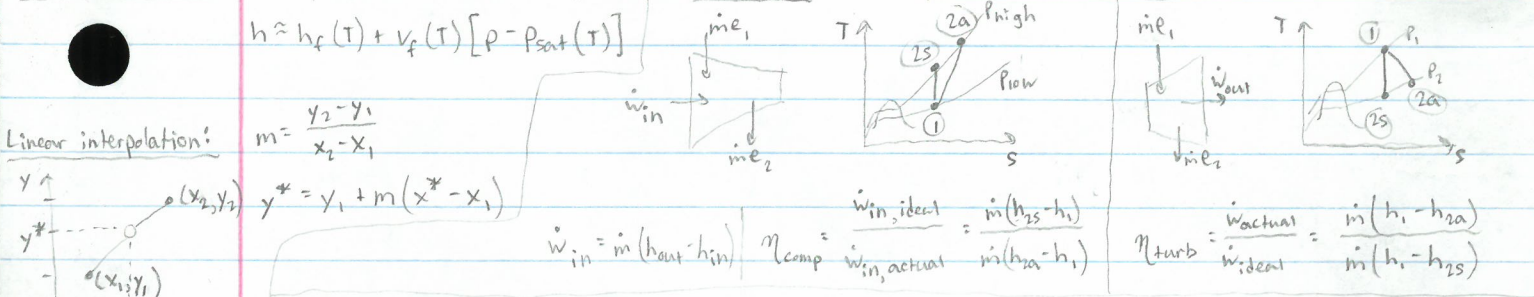 h ≈ h_f(T) + v_f(T)[p - p_sat(T)]
Linear interpolation:
m = (y₂ - y₁)/(x₂ - x₁)
y* = y₁ + m(x* - x₁)
y
(x₂, y₂)
y*
(x₁, y₁)
ṁe₁
ẇ_in
ṁe₂
T
2a
P_high
2s
P_low
1
s
ẇ_in = ṁ(h_out - h_in)
η_comp = ẇ_in,ideal/ẇ_in,actual = ṁ(h_2s - h₁)/ṁ(h_2a - h₁)
ṁe₁
ẇ_out
ṁe₂
T
1
P₁
P₂
2a
2s
s
η_turb = ẇ_actual/ẇ_ideal = ṁ(h₁ - h_2a)/ṁ(h₁ - h_2s)